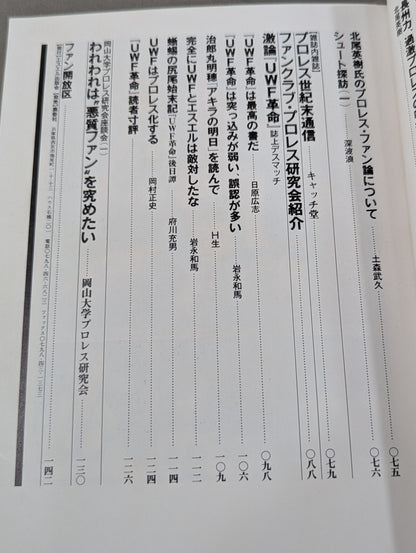 長州力
北尾英樹氏のプロレス・ファン論について
土森武久
七五
シュート探訪(一)
深液浪
七六
[雑誌内雑誌]
プロレス世紀末通信
キャッチ堂
七九
ファンクラブ・プロレス研究会紹介
八八
激論「UWF革命」誌上デスマッチ
「UWF革命」は最高の書だ
日原広志
九八
「UWF革命」は突っ込みが弱い、誤認が多い
岩永和馬
一〇六
治郎丸明穂「アキラの明日」を読んで
H生
一〇九
完全にUWFとエスエルは敵対したな
岩永和馬
一一二
蜥蜴の尻尾始末記「UWF革命」後日譚
府川充男
一一四
UWFはプロレス化する
岡村正史
一二四
「UWF革命」読者寸評
一二六
岡山大学プロレス研究会座談会(一)
われわれは“悪質ファン”を究めたい
岡山大学プロレス研究会
一三〇
ファン開放区
一四二